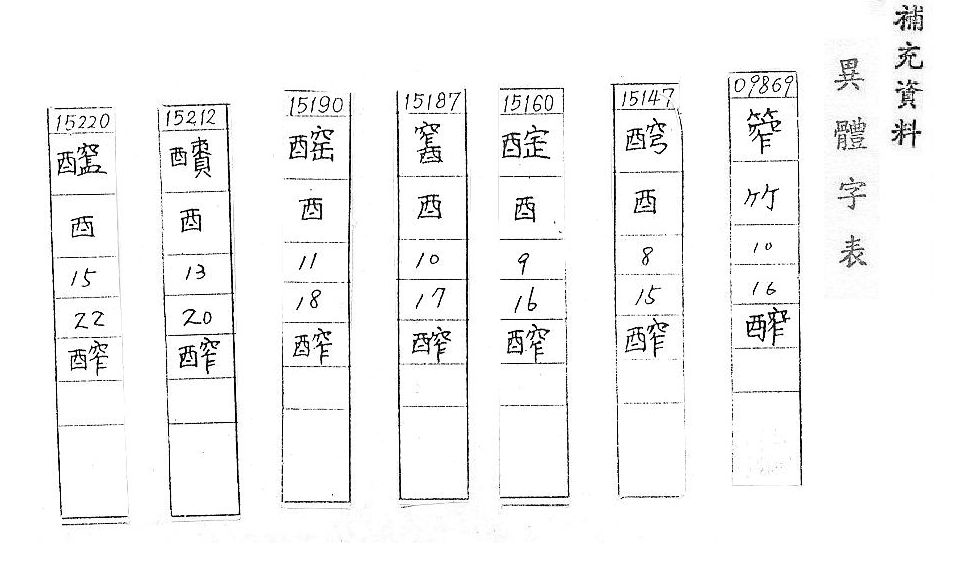 補充資料
異體字表
09869
筰
竹
10
16
醡
15147
酉
8
15
醡
15160
酉
9
16
醡
15187
酉
10
17
醡
15190
酉
11
18
醡
15212
酉
13
20
醡
15220
酉
15
22
醡